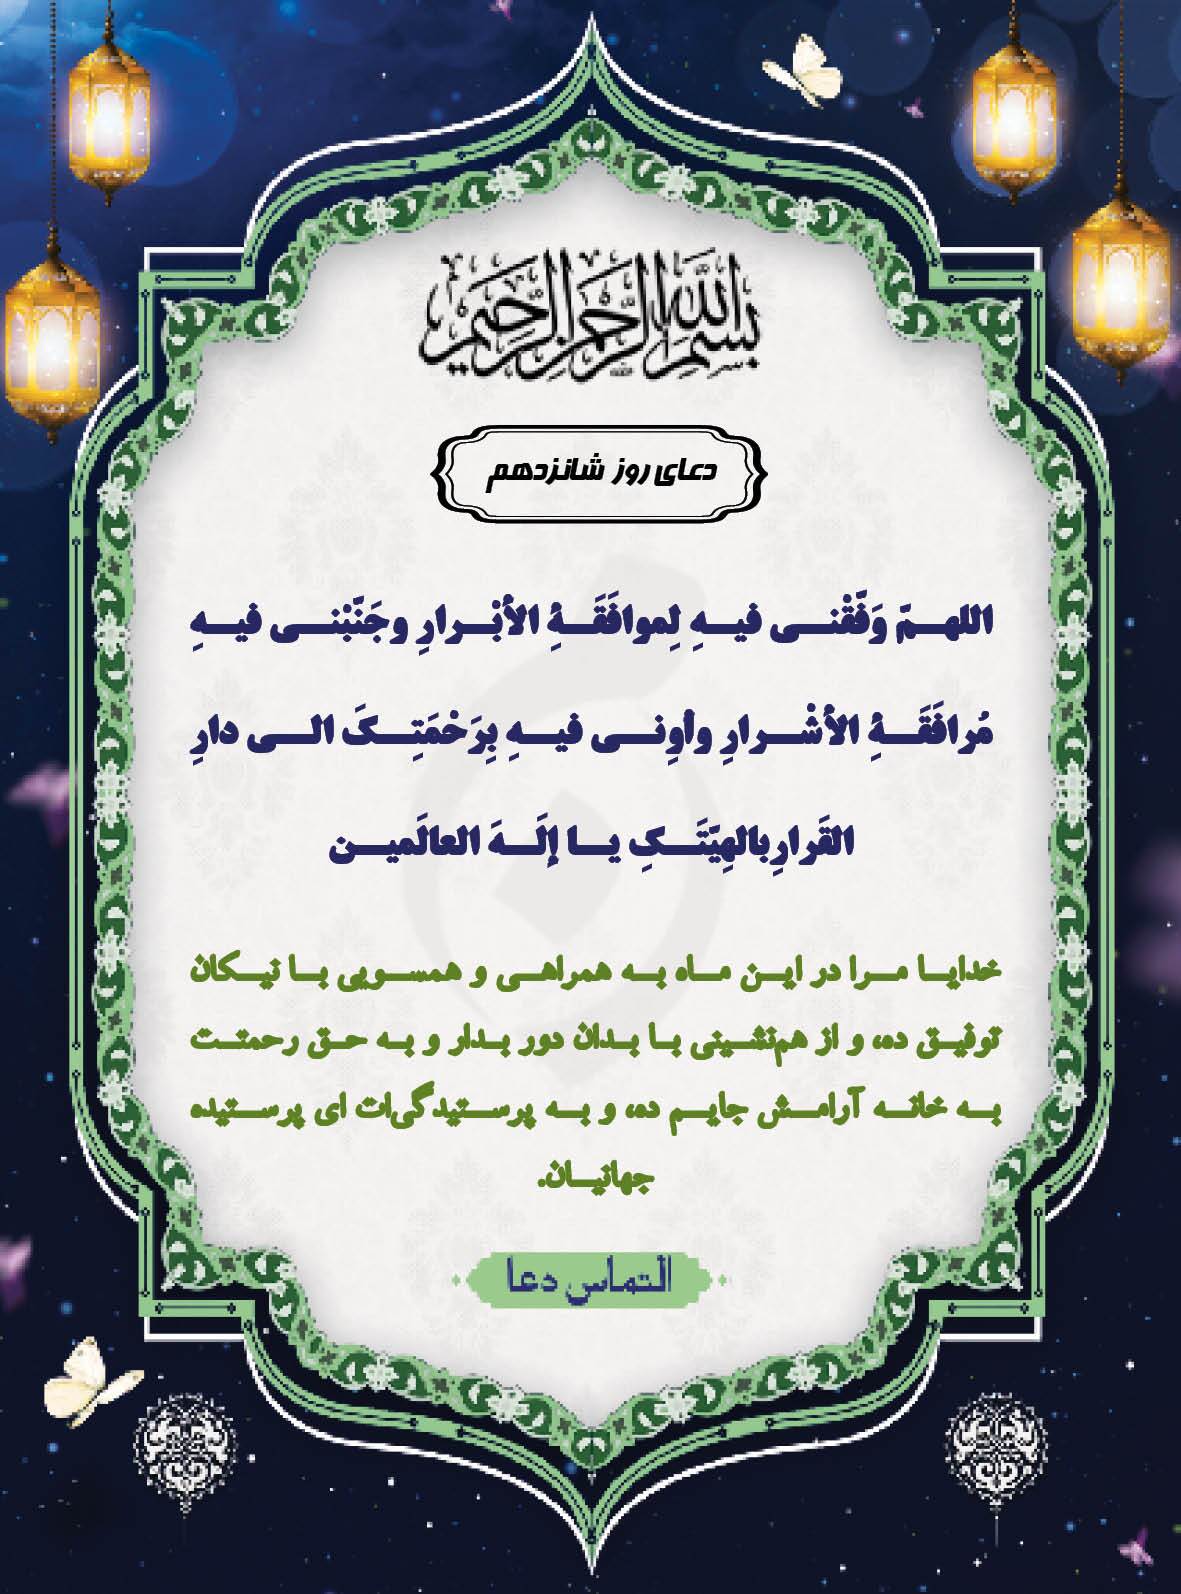 بسم الله الرحمن الرحیم
دعای روز شانزدهم
اللهمّ وَفّقْنی فیهِ لِموافَقَةِ الأبْرارِ وجَنّبْنی فیهِ
مُرافَقَةِ الأشْرارِ وأوِنی فیهِ بِرَحْمَتِکَ الی دارِ
القَرارِبالهِیّتَکِ یا إلَهَ العالَمین
خدایا مرا در این ماه به همراهی و همسویی با نیکان
توفیق ده، و از هم‌نشینی با بدان دور بدار و به حق رحمتت
به خانه آرامش جایم ده، و به پرستیدگی‌ات ای پرستیده
جهانیان.
التماس دعا